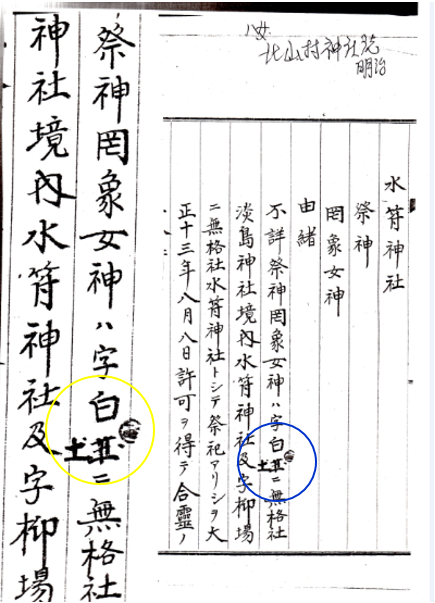 八女
北山村神社誌
明治
水符神社
祭神
罔象女神
由緒
不詳祭神罔象女神ハ字白土ニ無格社
淡島神社境内水符神社及字柳場
ニ無格社水符神社トシテ祭祀アリシヲ大
正十三年八月八日許可ヲ得テ合霊ノ
祭神罔象女神ハ字白土ニ無格社
神社境内水符神社及字柳場